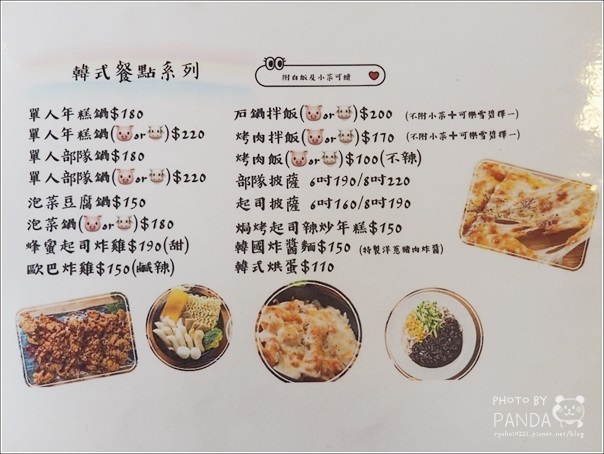 韓式餐點系列
附白飯及小菜可續
單人年糕鍋$180
單人年糕鍋(🐷or🐮)$220
單人部隊鍋$180
單人部隊鍋(🐷or🐮)$220
泡菜豆腐鍋$150
泡菜鍋(🐷or🐮)$180
蜂蜜起司炸雞$190(甜)
歐巴炸雞$150(鹹辣)
石鍋拌飯(🐷or🐮)$200 (不附小菜+可樂雪碧擇一)
烤肉拌飯(🐷or🐮)$170 (不附小菜+可樂雪碧擇一)
烤肉飯(🐷or🐮)$100(不辣)
部隊披薩 6吋190/8吋220
起司披薩 6吋160/8吋190
焗烤起司辣炒年糕$150
韓國炸醬麵$150 (特製洋蔥豬肉炸醬)
韓式烘蛋$110
PHOTO BY
PANDA